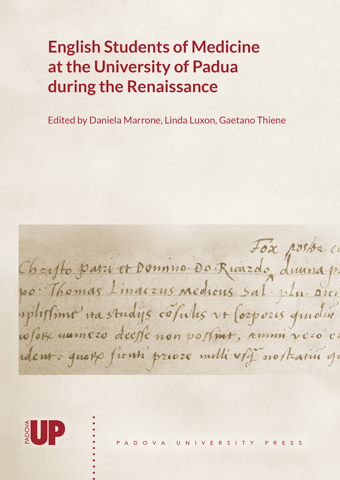 English Students of Medicine
at the University of Padua
during the Renaissance
Edited by Daniela Marrone, Linda Luxon, Gaetano Thiene
Fox
Christo patri et Domino Do. Ricardo divina
Thomas Linacrus Medicus Sal. plu.
ita studijs ut Corporis
numero deesse non possint, vero
priore
PADOVA
UP
PADOVA UNIVERSITY PRESS